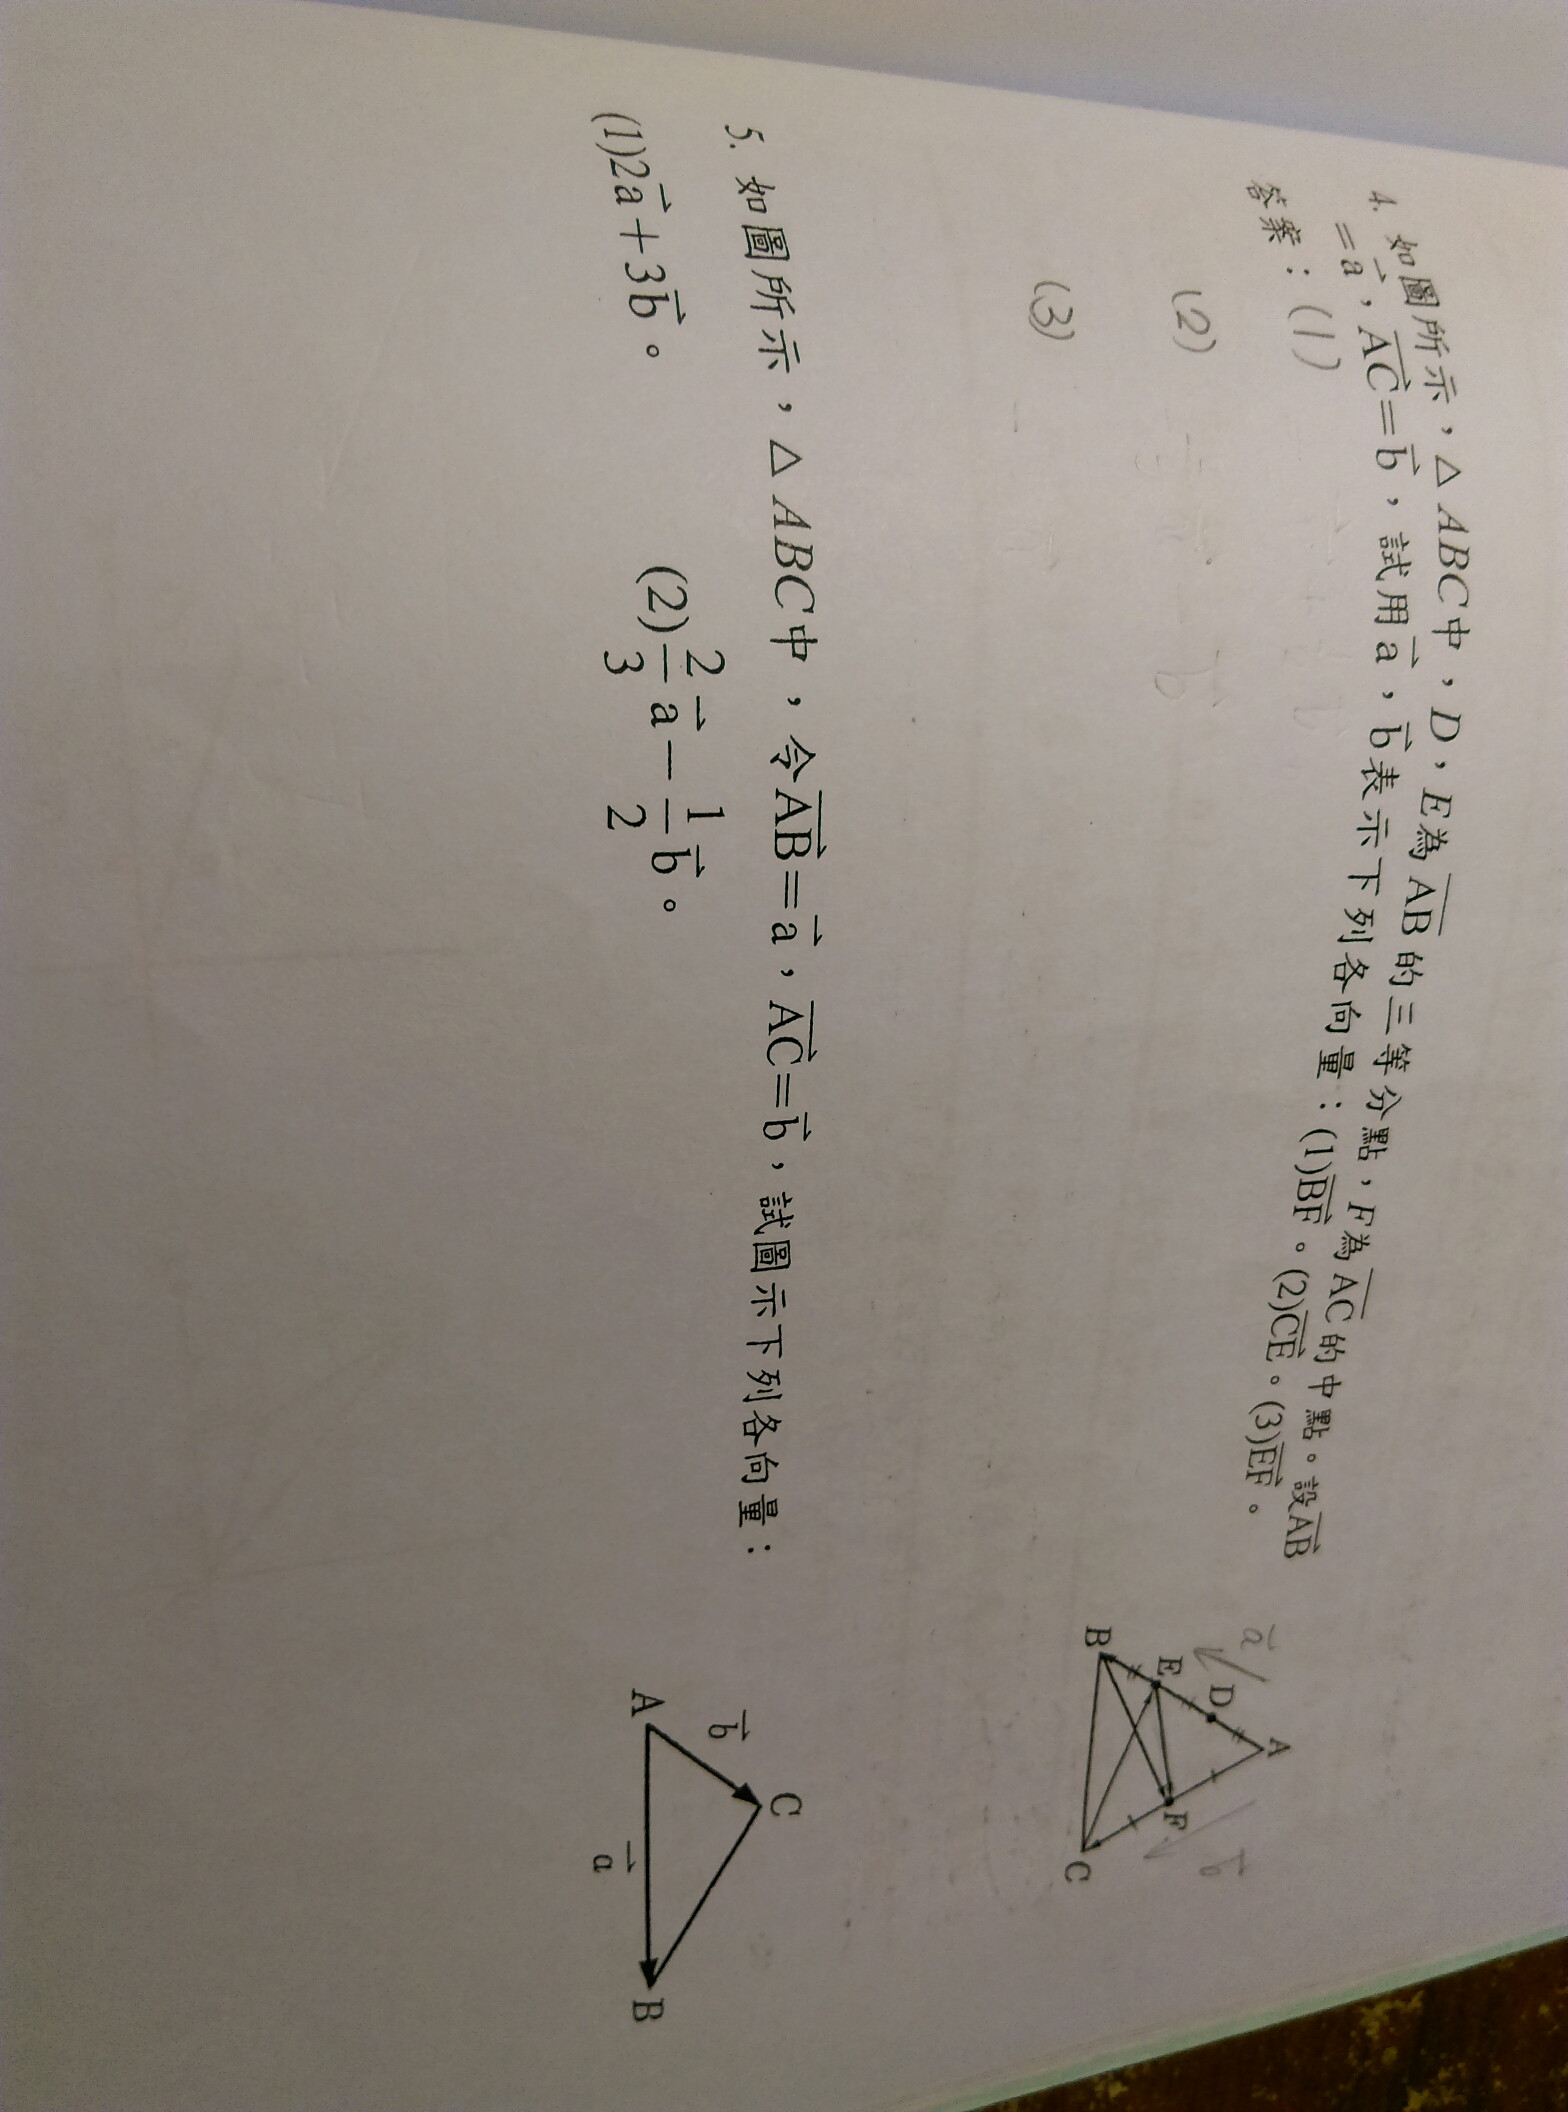 4. 如圖所示，△ABC中，D，E為AB的三等分點，F為AC的中點。設AB
=a，AC=b，試用a，b表示下列各向量：(1)BF。(2)CE。(3)EF。
答案：(1)
(2)
(3)
A
D
E
F
B
C
a
b
5. 如圖所示，△ABC中，令AB=a，AC=b，試圖示下列各向量：
(1)2a+3b。 (2)2/3a−1/2b。
C
b
A
B
a